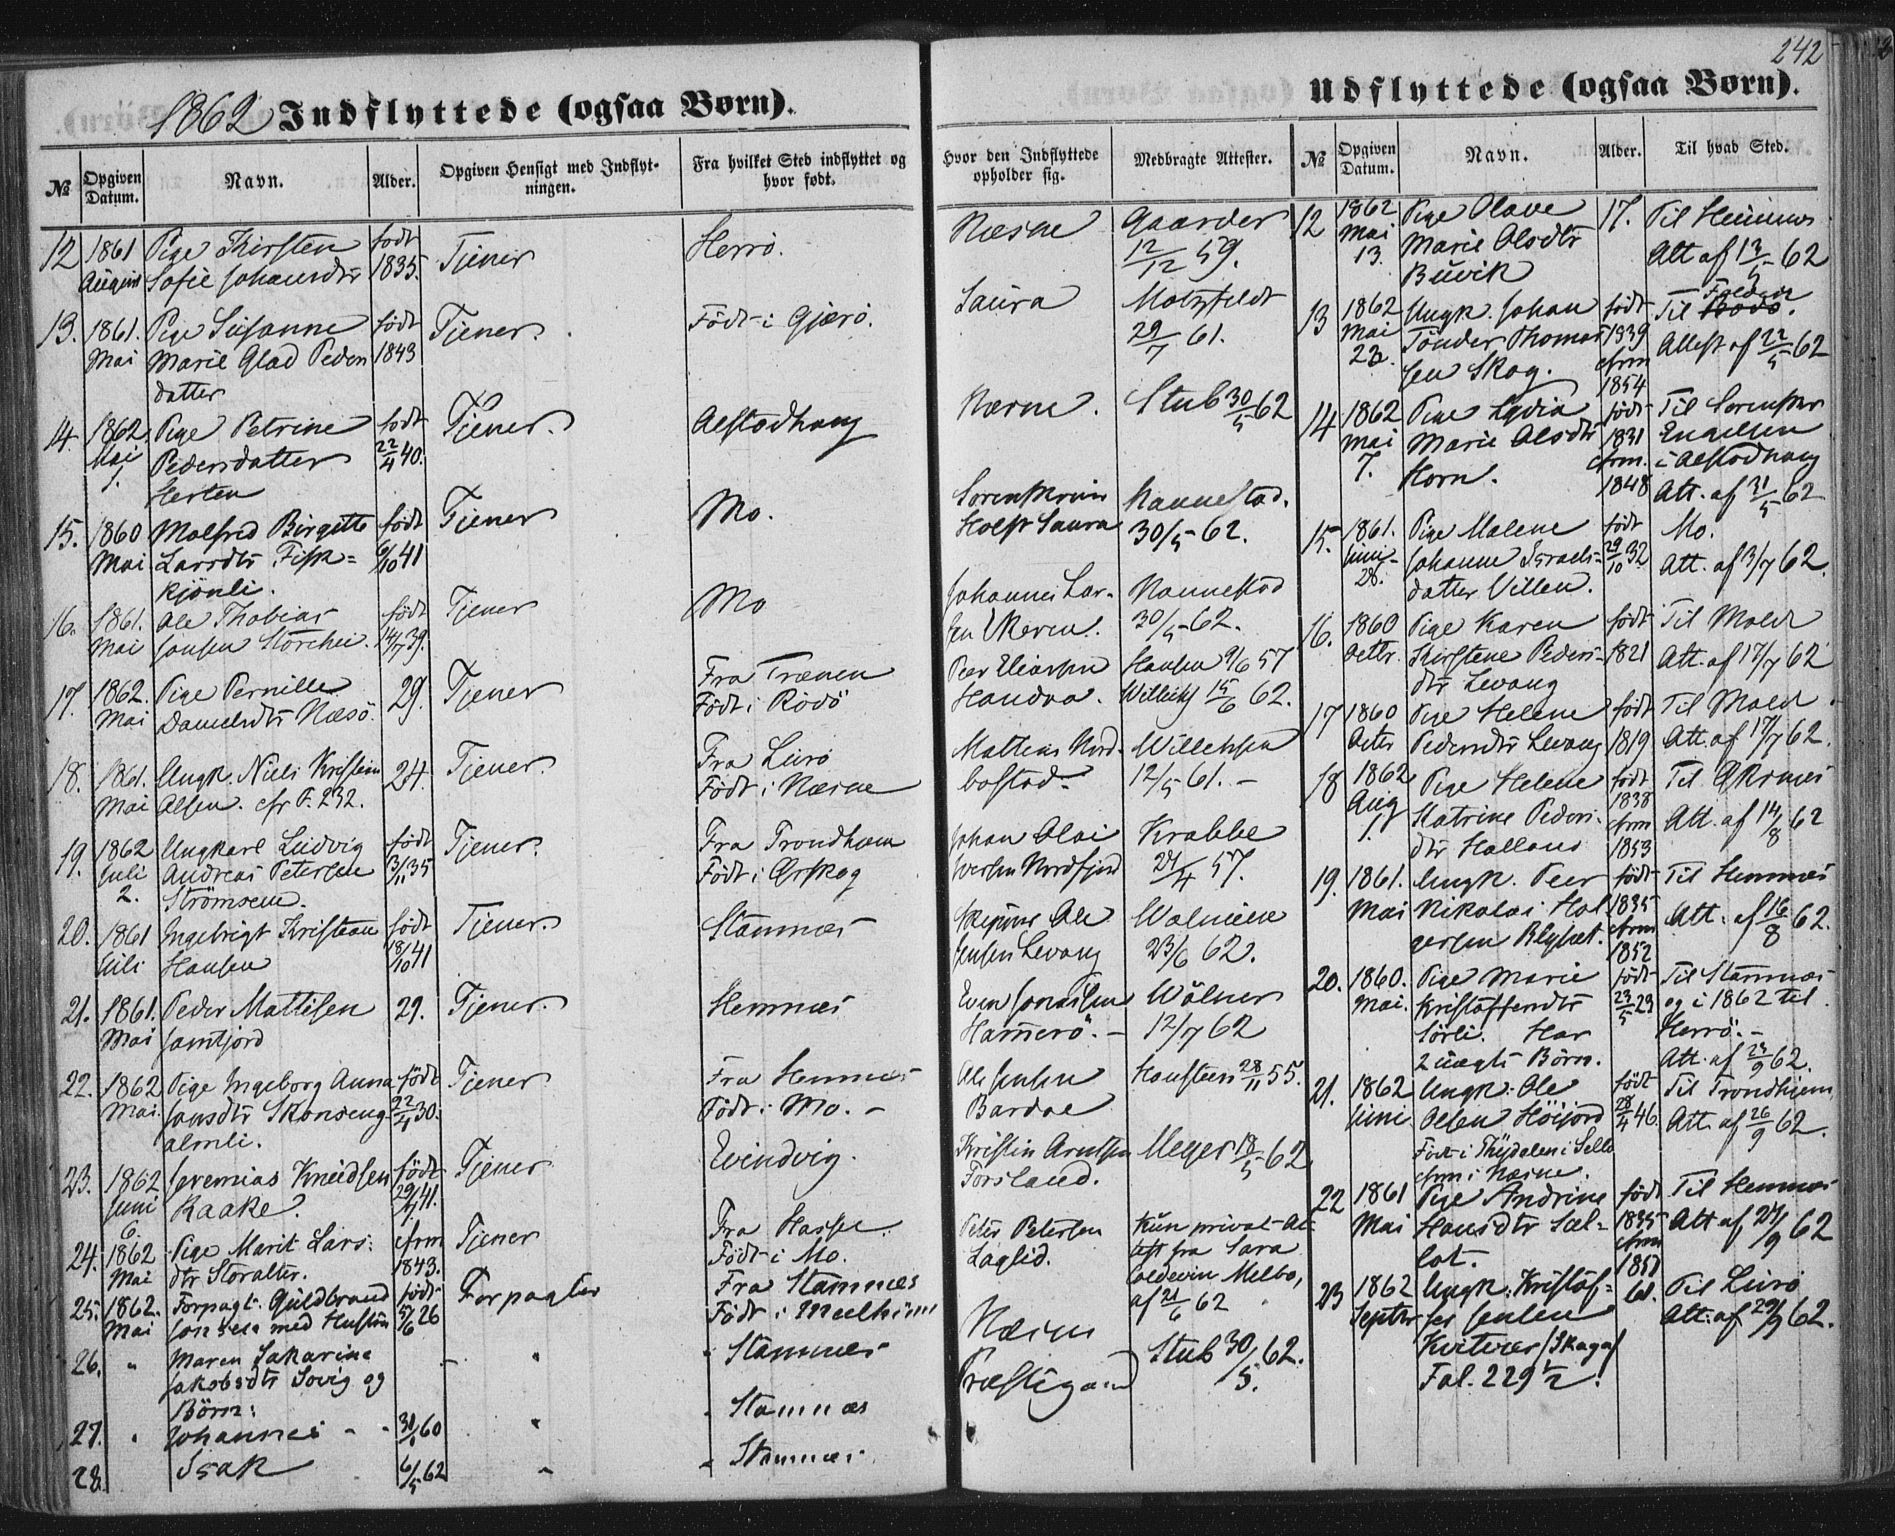 242
1862 Indflyttede (ogsaa Børn).
Udflyttede (ogsaa Børn).
№ Opgiven Datum. Navn. Alder. Opgiven Hensigt med Indflytningen. Fra hvilket Sted indflyttet og hvor født. Hvor den Indflyttede opholder sig. Medbragte Attester.
№ Opgiven Datum. Navn. Alder. Til hvad Sted.
12 1861 Pige Kirsten født Tjener Herrö. Næsne Gaarder
August Sofie Johansdtr 1835. 12/12 59.
13. 1861. Pige Susanne født Tjener. Født i Gjerö. Saura Motzfeldt
Mai Marie Glad Peders 1843 29/7 61.
datter
14. 1862 Pige Petrine født Tjener. Alstadhoug Næsne. Stub 30/5 62
Mai Pedersdatter 22/4 40.
1. Herten
15. 1860 Malfred Birgitte født Tjener Mo. Sorenskriver Nannestad.
Mai Larsdtr Fisk= 6/10 41 Holst Saura 30/5 62.
kjönli.
16. 1861. Ole Thobias født Tjener Mo Johannes Lar- Nannestad
Mai Jonsen Storehei. 14/7 39. sen 30/5 62.
17. 1862. Pige Pernille 29. Tjener Fra Trænen Peer Eliassen Hansen 9/6 57
Mai Danielsdtr Næsö. Født i Rödö Handnæ. 15/6 62.
18. 1861. Ungk. Niels Kristian 24. Tjener. Fra Lurö Mathias Nord- Willechsen
Mai Olsen. cfr F. 232. Født i Næsne bostad 12/5 61. -
19. 1862 Ungkarl Ludvig født Tjener. Fra Trondhiem Johan Olai Krabbe
Juli Andreas Petersen 13/11 35 Født i Ørskog Iversen Nordfjord 24/4 57.
2. Strömsem.
20. 1861 Ingebrigt Kristian født Tjener. Stamnæs Skipper Ole Wolnier
Juli Hansen 18/10 41 Jensen Levang 23/6 62.
21. 1861. Peder Mattisen 29. Tjener. Hemnæs Even Jonassen Wölner
Mai Jamtjord Hamnerö. - 12/7 62
22. 1862 Pige Ingeborg Anna født Tjener Fra Hemnæs Ole Jensen 28/11 55.
Mai. Jonsdtr Skonseng 22/4 30. Født i Mo. - Bardal
almli.
23. 1862 Jeremias Knudsen født Tjener Evindvig. Kristin Arntsen Meyer 18/5 62
Juni Raake. 29/7 41. Forsland.
6.
24. 1862 Pige Marit Lars: cfrm Tjener Peter Petersen Kun privat At-
Mai dtr Storalter. 1843. Født i Mo. test fra Sara
Coldevin Melbo,
af 21/6 62
25. 1862. Forpagt. Guldbrand født Forpagter Fra Stamnæs Næsne
Mai med Hustru 5/6 26 Født i Præstegaard Stub 30/5 62.
26. " Maren Sakarine - " " Stamnæs
Jakobsdtr Sovig og
Børn:
27. " Johannes - - 31/ 60 " " Stamnæs
28. Isak 6/5 62 " " Stamnæs
12 1862 Pige Olave 17. Til Hemnæs
Mai Marie Olsdtr Att af 13/5 62
13. Buvik
13 1862 Ungk. Johan født Til Bodö. Folden
Mai Tönder Thomas 1839 Attest af 22/5 62
22. sen Skog. cfrm
1854
14 1862 Pige Lydia født Til Sorenskr
Mai Marie Olsdtr 1831 Engelsen
7. Horn. cfrm. i Alstadhoug
1848 Att. af 31/5 62
15. 1861. Pige Malene født Mo.
Juni Johanne Israels- 29/10 32 Att. af 3/7 62.
28. datter Villen.
16. 1860 Pige Karen født Til Mold
Octbr. Kirstene Peders- 1821 Att. af 17/7 62
dtr Levang
17 1860 Pige Helene født Til Mold
Octbr Pedersdtr Levang 1819 Att. af 17/7 62.
18 1862 Pige Helene født Til
Aug Katrine Peders- 1838 Att. af 14/8 62
1. dtr cfrm
1853
19. 1861. Ungk. Peer født Til Hemnæs
Mai Nikolai Hol 1835 Att. af 16/8 62.
gersen cfrm
1852
20. 1860. Pige Marie født Til Stamnæs
Mai. Kristoffersdtr 23/5 29 og i 1862 til
Sörli. Har Herrö. -
2 uægte Börn. Att. af 23/9 62.
21. 1862 Ungk: Ole født Til Trondhiem
Juni Olsen Höifjord 28/4 46. Att. af 26/9 62.
Født i Thydalen i Selbo
cfrm i Næsne.
22 1861 Pige Andrine født Til Hemnæs
Mai Hansdtr Sæl- 1835 Att af 27/9 62
lot. cfrm
1850
23 1862 Ungk. Kristof- 61. Til Lurö
Septbr fer Jensen Att: af 29/9 62.
Kvitvær / Skaga /
Fol. 229 1/2.